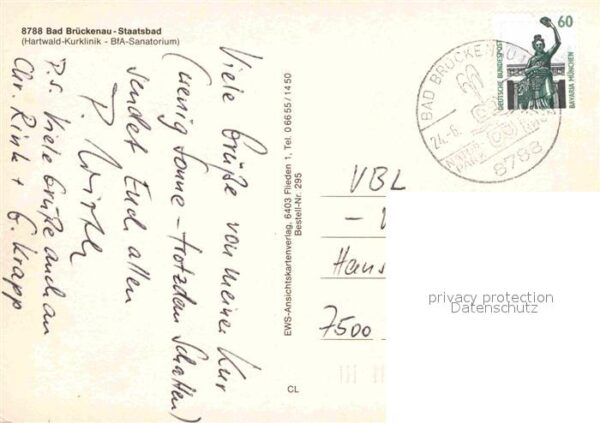 8788 Bad Brückenau - Staatsbad
(Hartwald-Kurklinik - BfA-Sanatorium)
Viele Grüße von meiner Kur
(wenig Sonne - trotzdem Schatten)
sendet Euch allen
P.S. Viele Grüße auch an
Chr. Rink + G. Krapp
EWS-Ansichtskartenverlag, 6403 Flieden 1, Tel. 0 66 55 / 14 50
Bestell-Nr. 295
CL
60
DEUTSCHE BUNDESPOST
BAVARIA MÜNCHEN
BAD BRÜCKENAU 1
24.-6.
PARK
8788
VBL
Hans
7500
privacy protection
Datenschutz